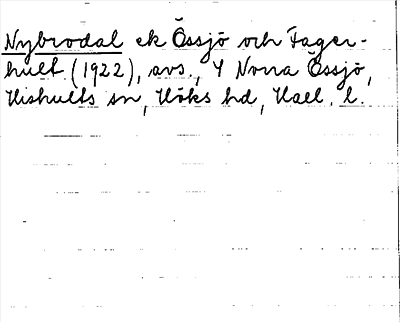 Nybrodal ek Össjö och Fager-
hult (1922), avs., Y Norra Össjö,
Hishults sn, Höks hd, Hall. l.